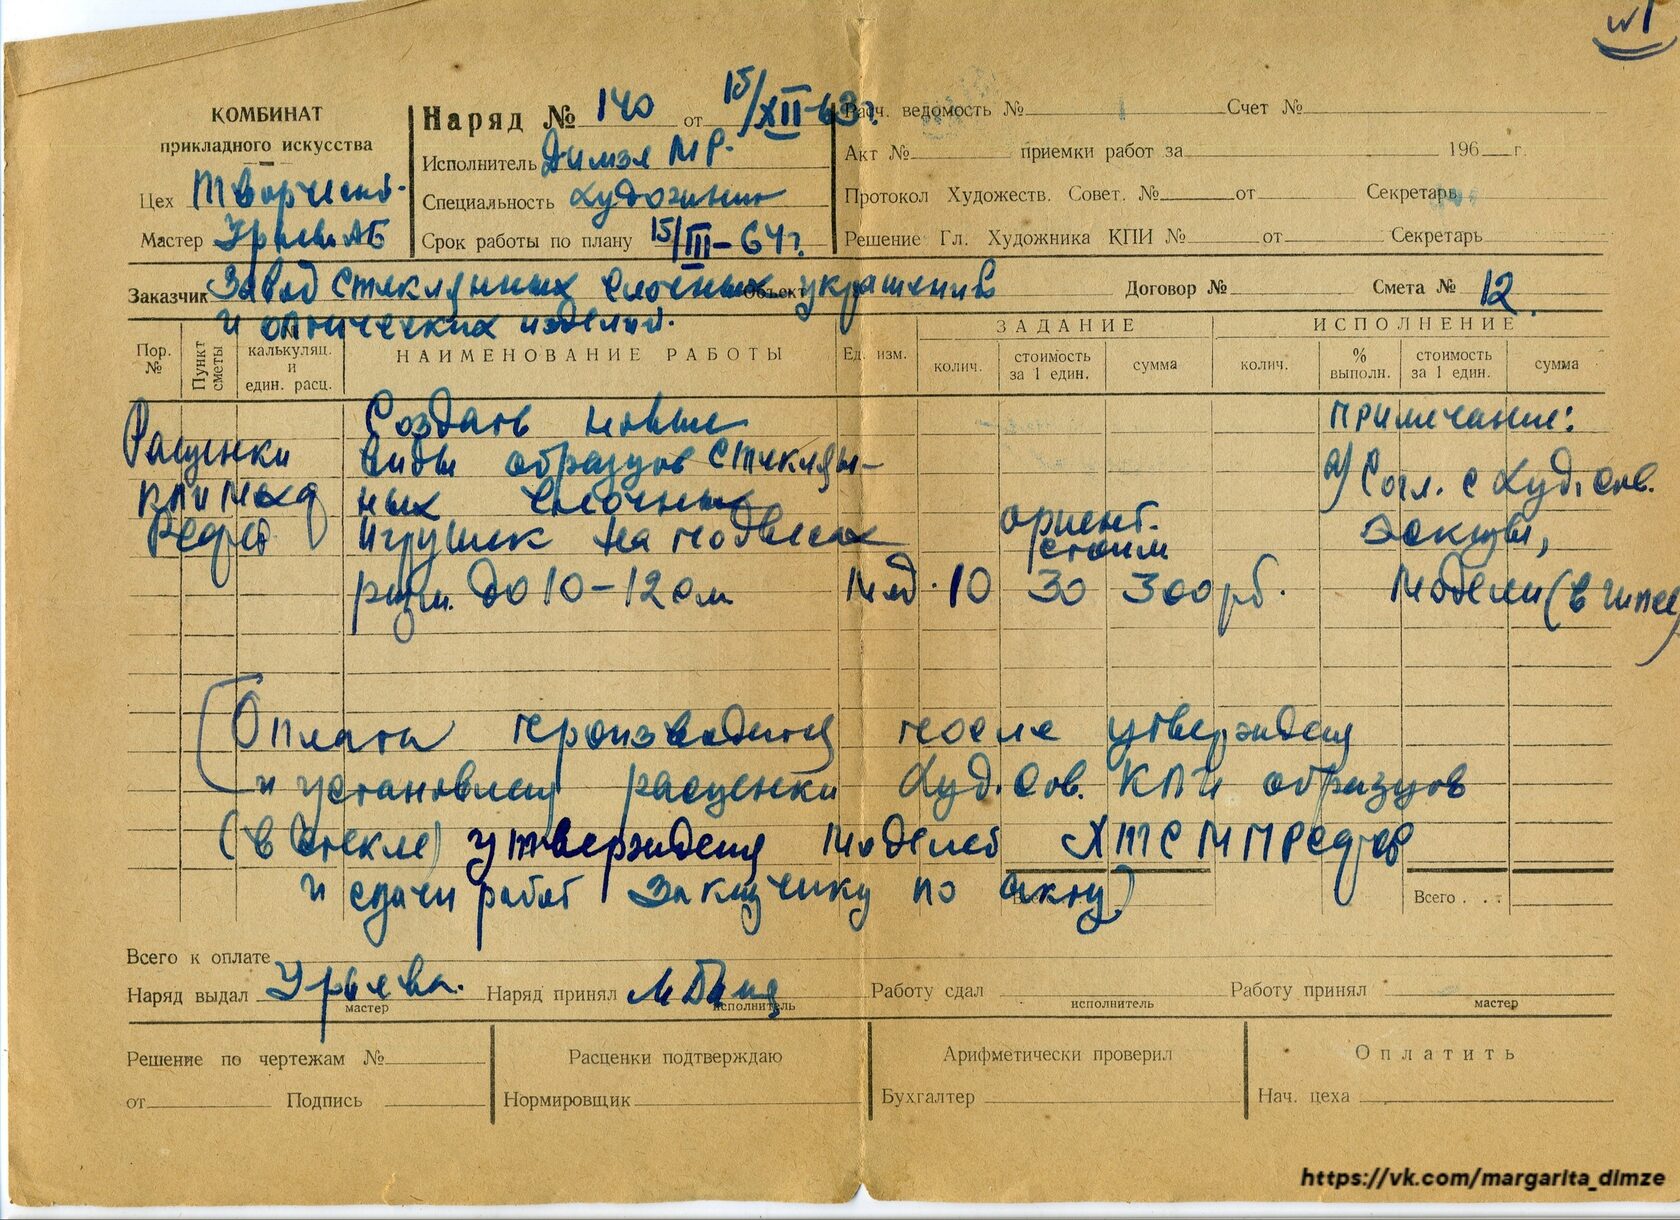 №1
КОМБИНАТ
прикладного искусства
Цех Творческ.
Мастер Урьева АБ
Наряд № 140 от 15/XII-63г.
Исполнитель Димзе МР.
Специальность художник
Срок работы по плану 15/III-64г.
Расч. ведомость № Счет №
Акт № приемки работ за 196 г.
Протокол Художеств. Совет. № от Секретарь
Решение Гл. Художника КПИ № от Секретарь
Заказчик Завод стеклянных елочных Объект украшений Договор № Смета № 12.
и оптических изделий.
Пор. №
Пункт сметы
калькуляц. и един. расц.
НАИМЕНОВАНИЕ РАБОТЫ
Ед. изм.
ЗАДАНИЕ
колич.
стоимость за 1 един.
сумма
ИСПОЛНЕНИЕ
колич.
% выполн.
стоимость за 1 един.
сумма
Расценки
Создать новые
виды образцов стеклян-
ных елочных
игрушек на подвесах
разм. до 10-12 см 10 30 300 рб.
ориент.
стоим
Примечание:
а) Согл. с Худ. Сов.
эскизы,
модели (в гипсе)
(Оплата производится после утвержденя
и установленя расценки Худ. Сов. КПИ образцов
(в стекле) утвержденя моделей
и сдачи работ заказчику по акту)
Всего . . .
Всего к оплате
Наряд выдал Урьева. Наряд принял Работу сдал Работу принял
мастер исполнитель исполнитель мастер
Решение по чертежам №
от Подпись
Расценки подтверждаю
Нормировщик
Арифметически проверил
Бухгалтер
Оплатить
Нач. цеха
https://vk.com/margarita_dimze